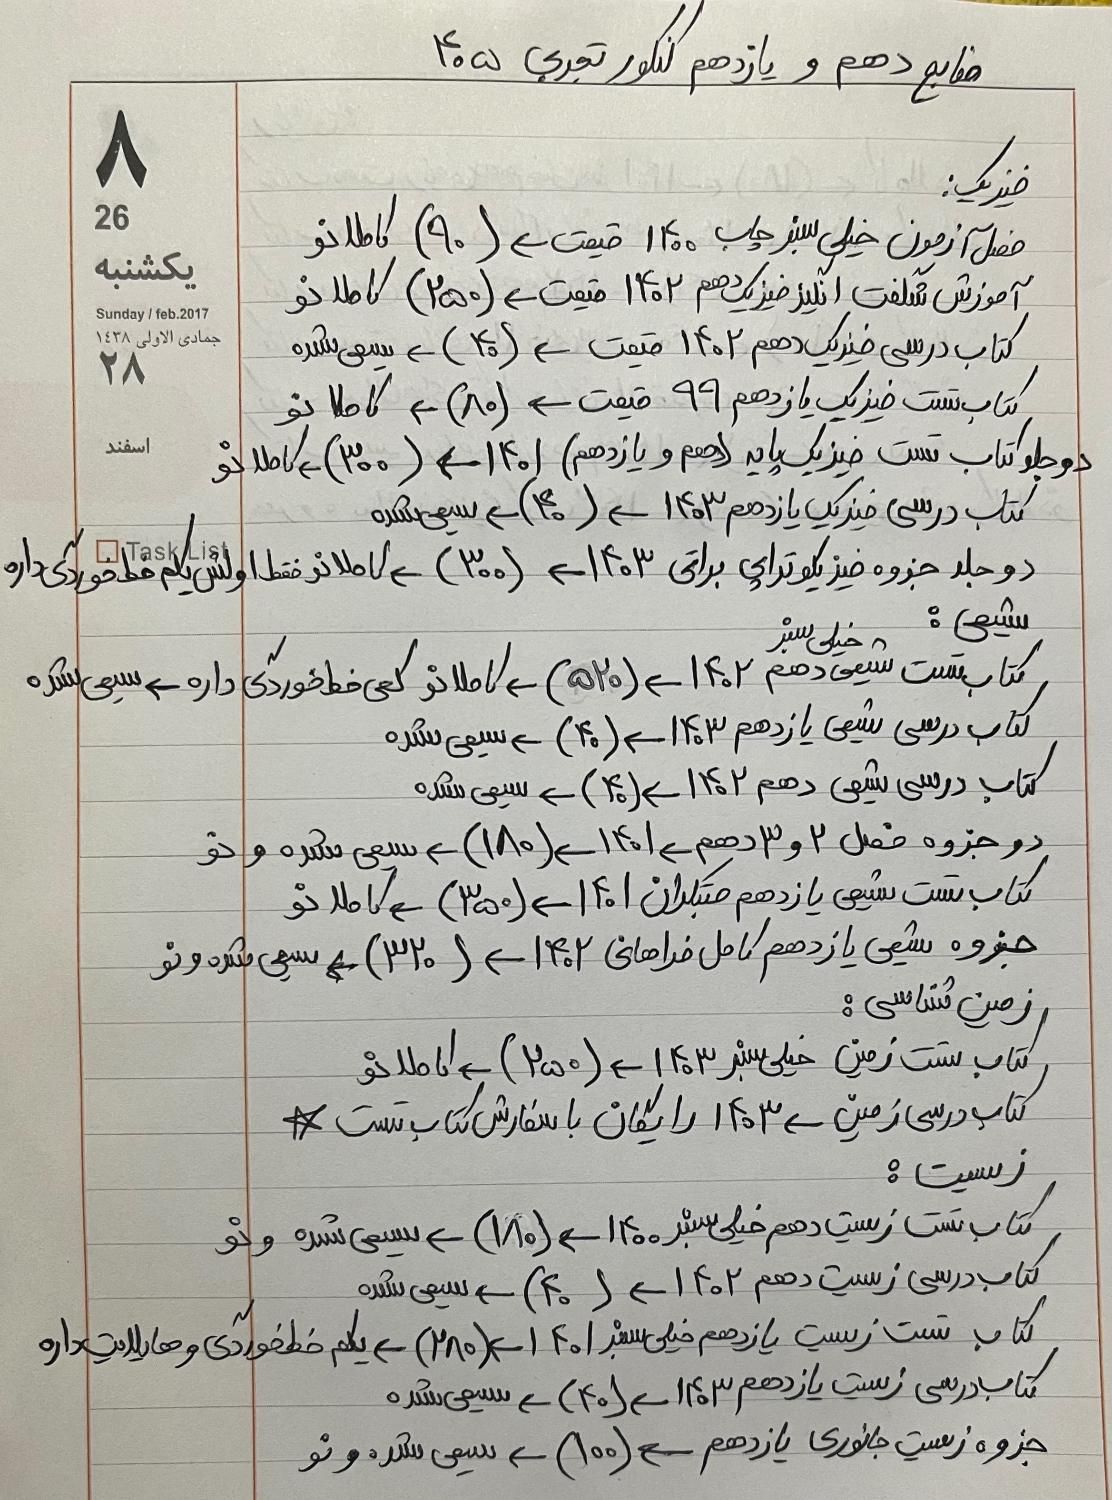 منابع دهم و یازدهم کنکور تجربی ۴۰۵
۸
26
یکشنبه
Sunday / feb.2017
جمادی الاولی ۱۴۳۸
۲۸
اسفند
Task List
فیزیک:
فصل آزمون خیلی سبز چاپ ۱۴۰۰ قیمت ← (۹۰) کاملا نو
آموزش شگفت انگیز فیزیک دهم ۱۴۰۲ قیمت ← (۲۵۰) کاملا نو
کتاب درسی فیزیک دهم ۱۴۰۲ قیمت ← (۴۰) ← سیمی شده
کتاب تست فیزیک یازدهم ۹۹ قیمت ← (۸۰) ← کاملا نو
دو جلد کتاب تست فیزیک پایه (دهم و یازدهم) ۱۴۰۱ ← (۳۰۰) ← کاملا نو
کتاب درسی فیزیک یازدهم ۱۴۰۳ ← (۴۰) ← سیمی شده
دو جلد جزوه فیزیکوتراپی براتی ۱۴۰۳ ← (۳۰۰) ← کاملا نو فقط اولش یکم خط خوردگی داره
شیمی :
خیلی سبز
کتاب تست شیمی دهم ۱۴۰۲ ← (۵۲۰) ← کاملا نو کمی خط خوردگی داره ← سیمی شده
کتاب درسی شیمی یازدهم ۱۴۰۳ ← (۴۰) ← سیمی شده
کتاب درسی شیمی دهم ۱۴۰۲ ← (۴۰) ← سیمی شده
دو جزوه فصل ۲ و ۳ دهم ← ۱۴۰۱ ← (۱۸۰) ← سیمی شده و نو
کتاب تست شیمی یازدهم مبتکران ۱۴۰۱ ← (۳۵۰) ← کاملا نو
جزوه شیمی یازدهم کامل فراهانی ۱۴۰۲ ← (۳۲۰) ← سیمی شده و نو
زمین شناسی :
کتاب تست زمین خیلی سبز ۱۴۰۳ ← (۲۵۰) ← کاملا نو
کتاب درسی زمین ← ۱۴۰۳ رایگان با سفارش کتاب تست *
زیست :
کتاب تست زیست دهم خیلی سبز ۱۴۰۰ ← (۱۸۰) ← سیمی شده و نو
کتاب درسی زیست دهم ۱۴۰۲ ← (۴۰) ← سیمی شده
کتاب تست زیست یازدهم خیلی سبز ۱۴۰۱ ← (۲۸۰) ← یکم خط خوردگی و هایلایت داره
کتاب درسی زیست یازدهم ۱۴۰۳ ← (۴۰) ← سیمی شده
جزوه زیست جانوری یازدهم ← (۱۰۰) ← سیمی شده و نو